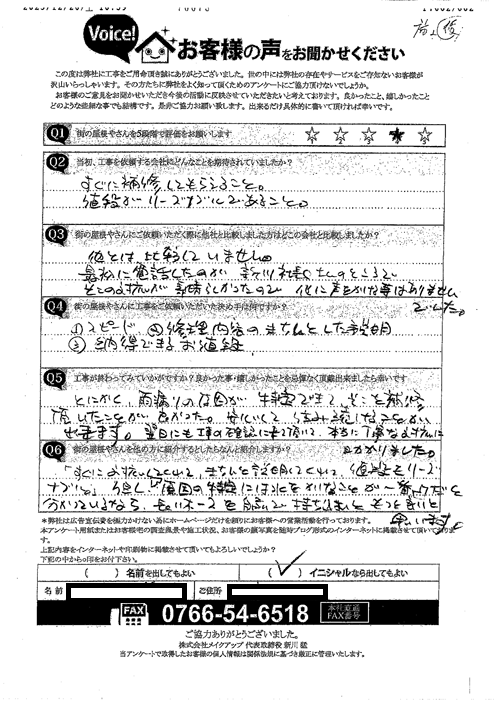 Voice!
お客様の声をお聞かせください
この度は弊社に工事をご用命頂き誠にありがとうございました。世の中には弊社の存在やサービスをご存じないお客様が
沢山いらっしゃいます。その方たちに弊社をよく知って頂くためのアンケートにご協力頂けないでしょうか。
お客様のご意見をお聞かせいただき今後の活動に反映させていただきたいと考えております。良かったこと、嬉しかったこと
どのような些細な事でも結構です。是非ご協力お願い致します。出来るだけ具体的に書いて頂ければ幸いです。
Q1 街の屋根やさんを5段階で評価をお願いします ☆ ☆ ☆ ★ ☆
Q2 当初、工事を依頼する会社にどんなことを期待されていましたか?
すぐに補修してもらえること。
値段がリーズナブルであること。
Q3 街の屋根やさんにご依頼いただく際に他社と比較しました方はどこの会社と比較しましたか?
他とは比較していません。
最初に電話したのが 新川社長さんのところで
そこの対応が素晴らしかったので 他に声をかけた事はありません
でした。
Q4 街の屋根やさんに工事をご依頼いただいた決め手は何ですか?
①スピード ②修理内容のきちんとした説明
③納得できるお値段
Q5 工事が終わってみていかがですか?良かった事・嬉しかったことを忌憚なく頂戴出来ましたら幸いです
とにかく 雨漏りの原因が 特定できて、そこを補修
頂いたことが 良かった。安心して 住み続けることが
出来ます。翌日にも工事の確認に来て頂いて、本当に丁寧な対応に
助かりました。
Q6 街の屋根やさんを他の方に紹介するとしたらなんと紹介しますか?
「すぐに対応してくれて、きちんと説明してくれて、値段もリーズ
ナブル。
*弊社は広告宣伝費を張力かけない為にホームページだけを頼りにお客様への営業活動を行っております。
本アンケート用紙またはお客様宅の調査風景や施工状況、お客様の顔写真を随時ブログ形式のインターネットに掲載させて頂いております。
上記内容をインターネットや印刷物に掲載させて頂いてもよろしいでしょうか?
下記の中からの印をお付下さい。
( ) 名前を出してもよい (✓) イニシャルなら出してもよい
名前 ご住所
FAX 0766-54-6518 本社直通 FAX番号
ご協力ありがとうございました。
株式会社メイクアップ 代表取締役 新川 猛
当アンケートで取得したお客様の個人情報は関係法規に基づき厳正に管理いたします。